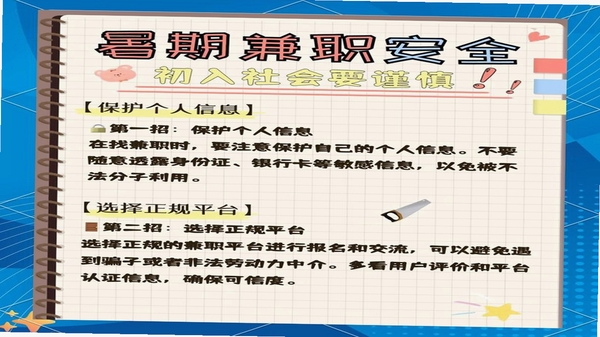 暑期兼职安全
初入社会要谨慎!!
【保护个人信息】
第一招：保护个人信息
在找兼职时，要注意保护自己的个人信息。不要
随意透露身份证、银行卡等敏感信息，以免被不
法分子利用。
【选择正规平台】
第二招：选择正规平台
选择正规的兼职平台进行报名和交流，可以避免遇
到骗子或者非法劳动力中介。多看用户评价和平台
认证信息，确保可信度。